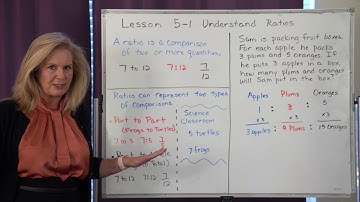 Lesson 5-1 Understand Ratios
A ratio is a comparison
of two or more quantities.
7 to 12 7:12 7/12
Ratios can represent two types
of comparisons.
Part to Part
(Frogs to Turtles)
7 to 5 7:5 7/5
7 to 12 7:12 7/12
Science
Classroom
5 turtles
7 frogs
Sam is packing fruit boxes.
For each apple he packs
3 plums and 5 oranges. If
he puts 3 apples in a box,
how many plums and oranges
will Sam put in the box?
Apples Plums Oranges
1 : 3 : 5
x3 x3 x3
3 apples : 9 Plums : 15 Oranges